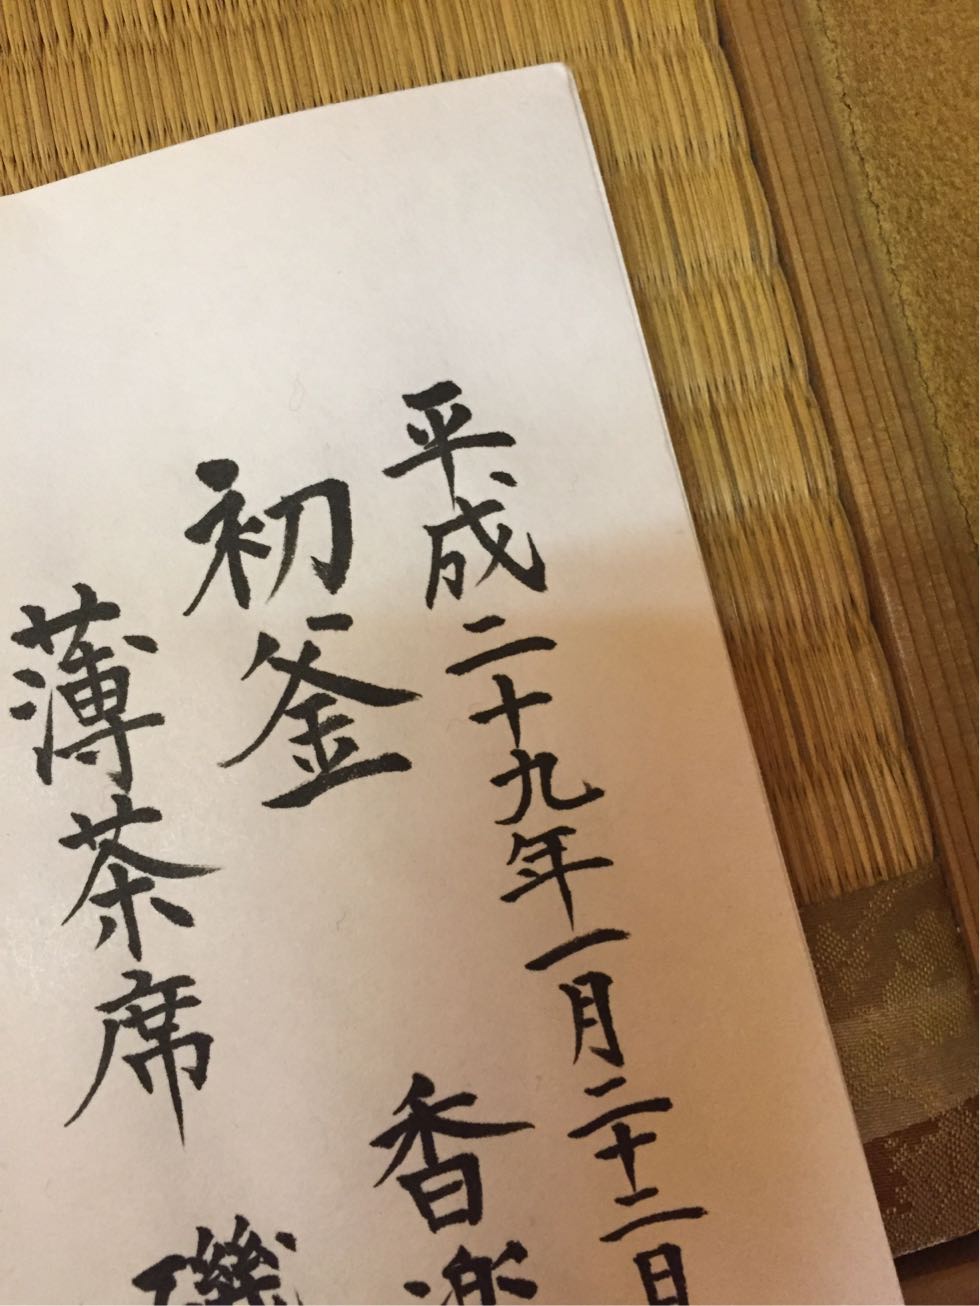 平成二十九年一月二十二日
初釜 香
薄茶席 磯